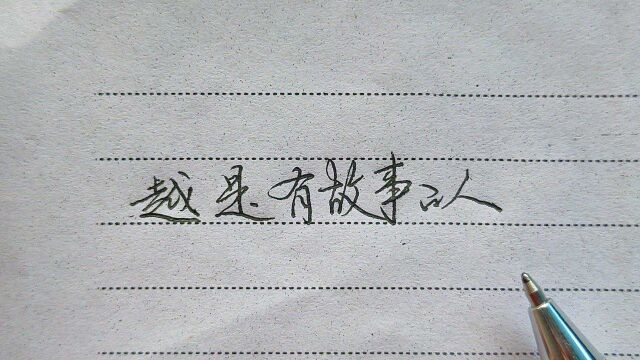 越是有故事的人